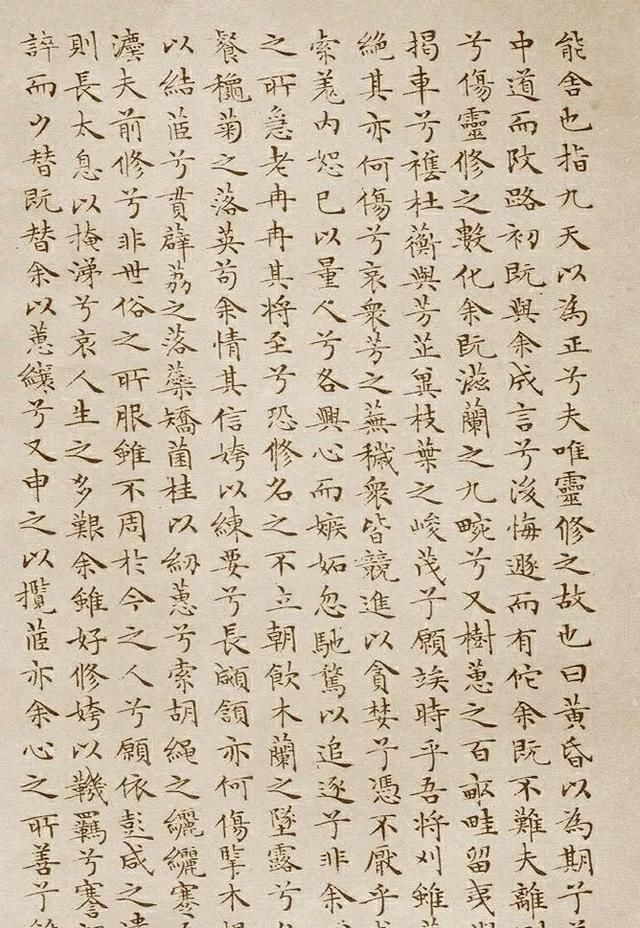 能舍也指九天以為正兮夫唯靈修之故也曰黃昏以為期兮
中道而改路初既與余成言兮後悔遯而有佗余既不難夫離
兮傷靈修之數化余既滋蘭之九畹兮又樹蕙之百畝畦留夷
揭車兮襍杜蘅與芳芷冀枝葉之峻茂兮願竢時乎吾將刈雖
絕其亦何傷兮哀衆芳之蕪穢衆皆競進以貪婪兮憑不厭乎
索羌內恕己以量人兮各興心而嫉妬忽馳騖以追逐兮非余
之所急老冉冉其將至兮恐修名之不立朝飲木蘭之墜露兮
餐穐菊之落英苟余情其信姱以練要兮長顑頷亦何傷擥木
以結茝兮貫薜荔之落蘂矯菌桂以紉蕙兮索胡繩之纚纚謇
灋夫前修兮非世俗之所服雖不周於今之人兮願依彭咸之
則長太息以掩涕兮哀人生之多艱余雖好修姱以鞿羈兮謇
誶而夕替既替余以蕙纕兮又申之以攬茝亦余心之所善兮